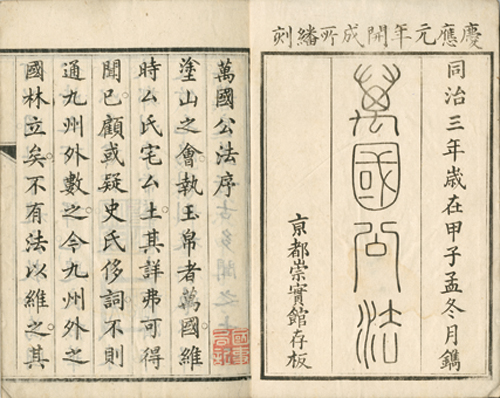 慶應元年開成所繙刻
同治三年歲在甲子孟冬月鐫
萬國公法
亰都崇實館存板
萬國公法序
塗山之會執玉帛者萬國維
時厶氏宅厶土其詳弗可得
聞已。顧或疑史氏侈詞不則
通九州外數之。今九州外之
國林立矣。不有法以維之其